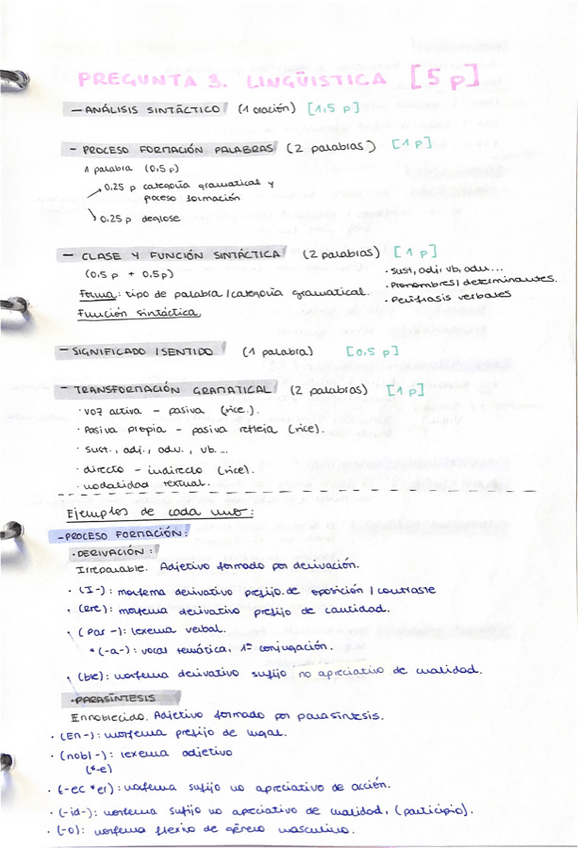 PREGUNTA 3. LINGÜISTICA [5 p]
- ANÁLISIS SINTÁCTICO (1 oración) [1,5 p]
- PROCESO FORMACIÓN PALABRAS (2 palabras) [1 p]
1 palabra (0,5 p)
0,25 p categoría gramatical y
proceso formación
0,25 p desglose
- CLASE Y FUNCIÓN SINTÁCTICA (2 palabras) [1 p]
(0,5 p + 0,5 p)
· Sust, adj, vb, adv...
· Pronombres/determinantes.
· Perífrasis verbales
Forma: tipo de palabra / categoría gramatical.
Función sintáctica.
- SIGNIFICADO / SENTIDO (1 palabra) [0,5 p]
- TRANSFORMACIÓN GRAMATICAL (2 palabras) [1 p]
· voz activa - pasiva (vice.).
· Pasiva propia - pasiva refleja (vice).
· Sust., adj., adv., vb...
· directo - indirecto (vice).
· modalidad textual.
Ejemplos de cada uno:
- PROCESO FORMACIÓN:
· DERIVACIÓN:
Irreparable. Adjetivo formado por derivación.
· (I-): morfema derivativo prefijo de oposición / contraste
· (Rre): morfema derivativo prefijo de cantidad.
(Par-): lexema verbal.
* (-a-): vocal temática, 1ª conjugación.
(ble): morfema derivativo sufijo no apreciativo de cualidad.
· PARASÍNTESIS
Ennoblecido. Adjetivo formado por parasíntesis.
· (En-): morfema prefijo de lugar.
· (nobl-): lexema adjetivo
(*-e)
· (-ec *er): morfema sufijo no apreciativo de acción.
· (-id-): morfema sufijo no apreciativo de cualidad, (participio).
· (-o): morfema flexivo de género masculino.